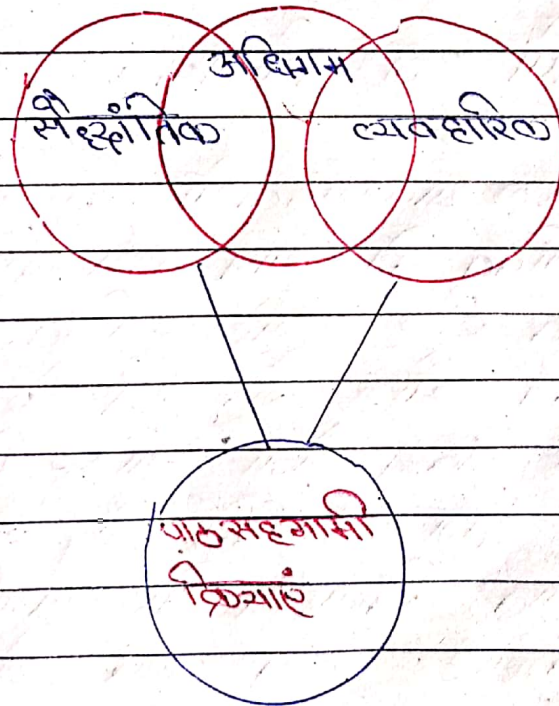 अधिगम
सैद्धांतिक
व्यवहारिक
पाठसहगामी
क्रियाएं